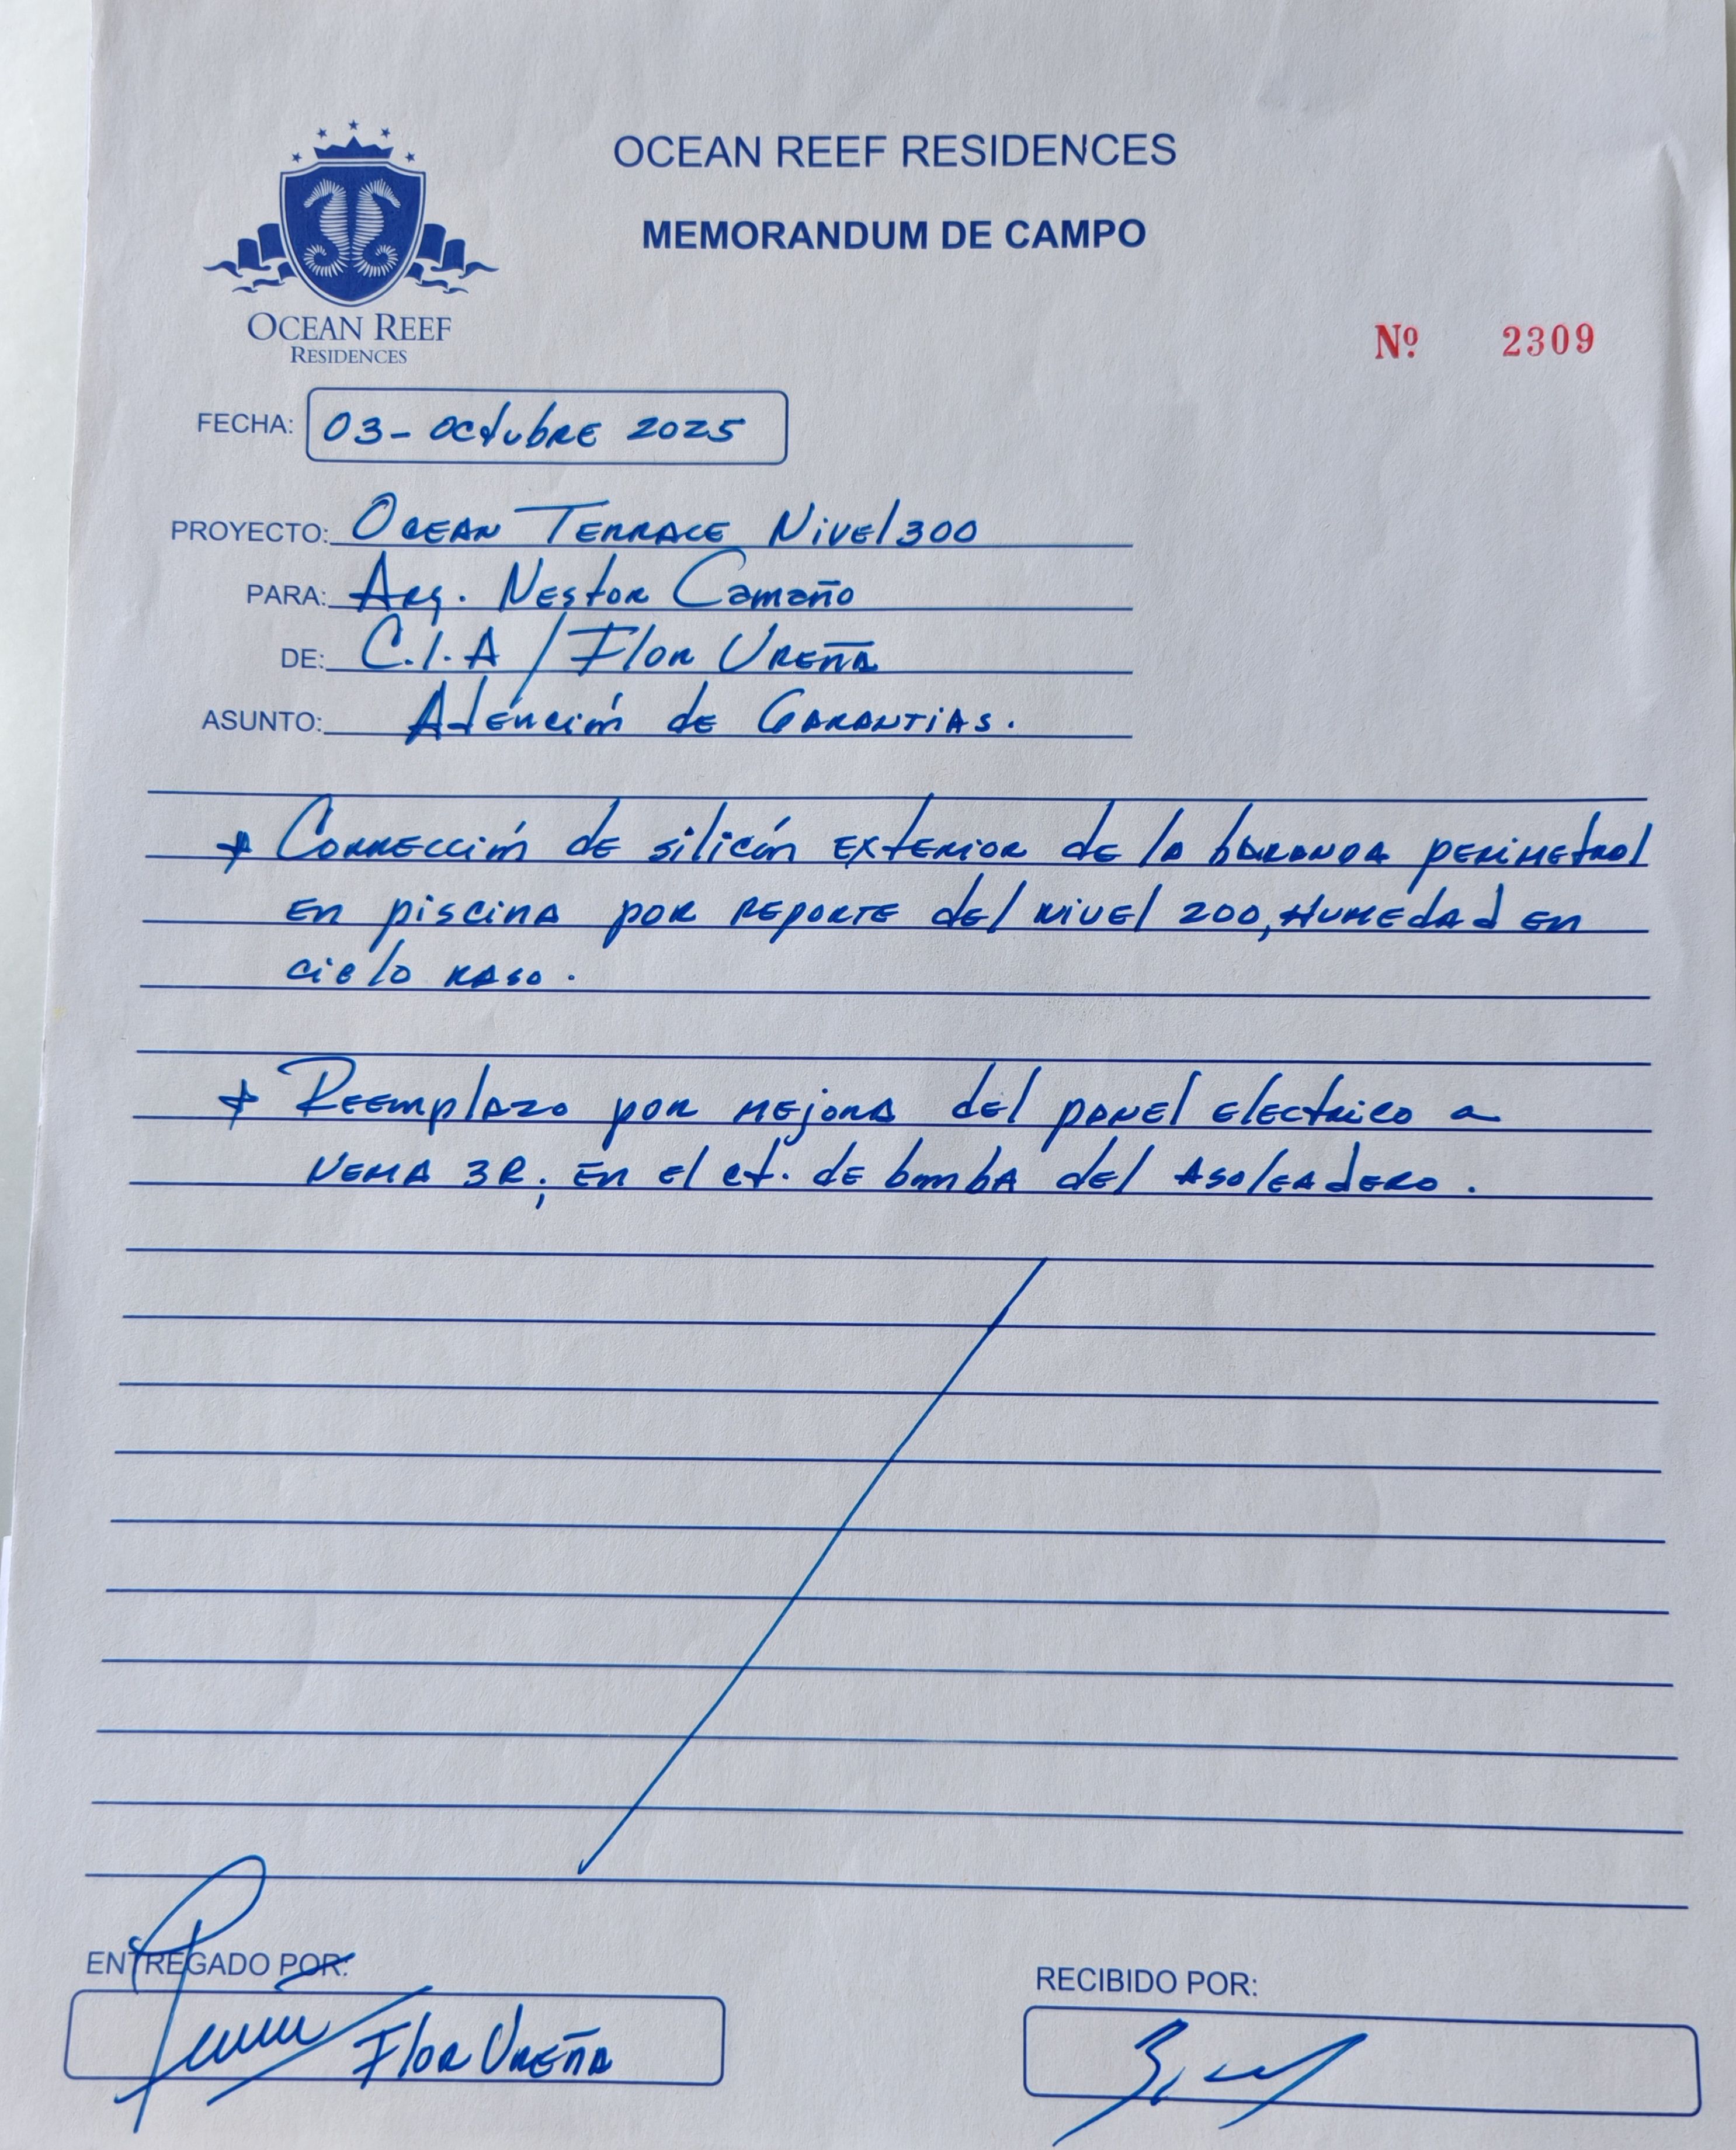 OCEAN REEF RESIDENCES
MEMORANDUM DE CAMPO
OCEAN REEF
RESIDENCES
Nº 2309
FECHA: 03-octubre 2025
PROYECTO: Ocean Terrace Nivel 300
PARA: Arq. Nestor Camaño
DE: C.I.A / Flor Ureña
ASUNTO: Atención de Garantias.
+ Corrección de silicón exterior de la baranda perimetral
en piscina por reporte del nivel 200, Humedad en
cielo raso.
+ Reemplazo por mejora del panel electrico a
NEMA 3R; en el ct. de bomba del asoleadero.
ENTREGADO POR:
RECIBIDO POR:
Flor Ureña